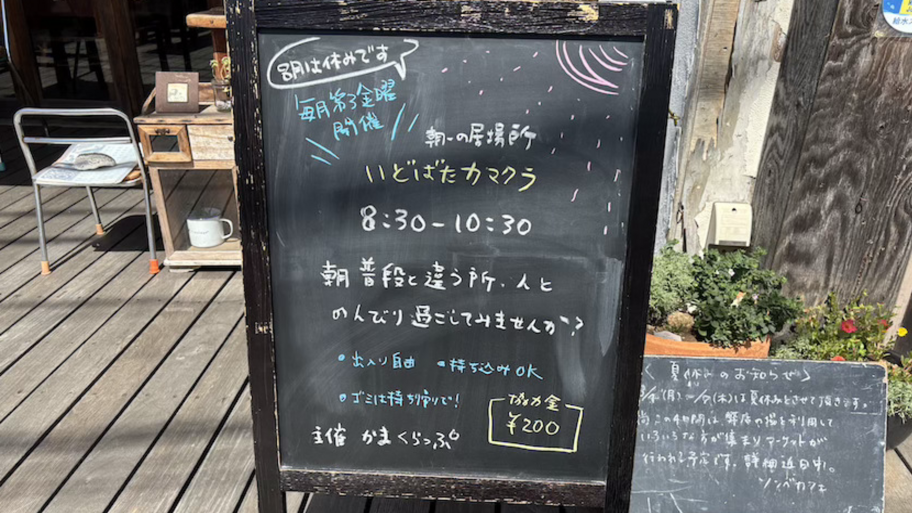 8月は休みです
毎月第3金曜
開催
朝一の居場所
いどばたカマクラ
8:30-10:30
朝 普段と違う所、人と
のんびり過ごしてみませんか?
・出入り自由 ・持ち込みOK
・ゴミは持ち帰りで!
協力金
¥200
主催 かまくらっぷ
〈夏休みのお知らせ〉
(月)~ (木)は夏休みとさせて頂きます。
この4日間は 弊店の場を利用して
いろいろな方が集まり マーケットが
行われる予定です。詳細近日中。
ソンベカフェ
給水